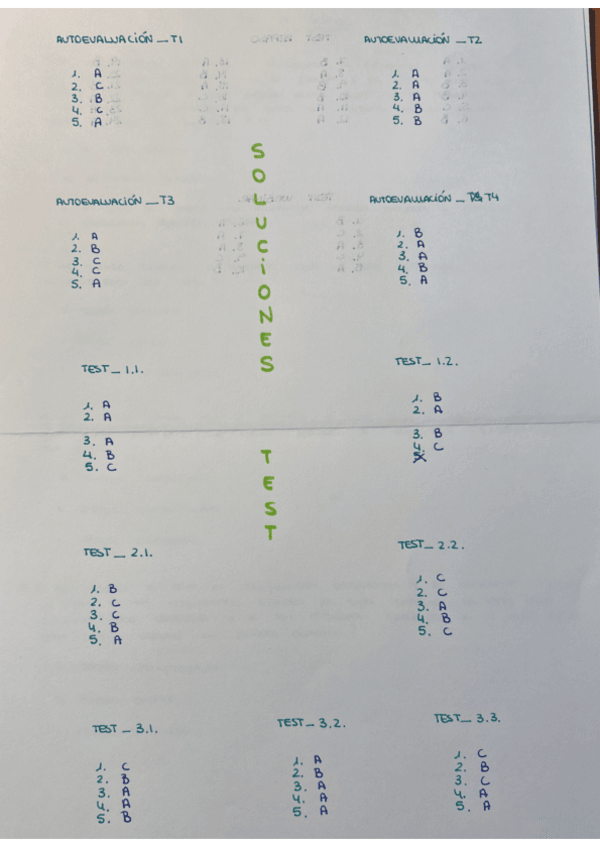 AUTOEVALUACIÓN _ T1
1. A
2. C
3. B
4. C
5. A
AUTOEVALUACIÓN _ T2
1. A
2. A
3. A
4. B
5. B
SOLUCIONES TEST
AUTOEVALUACIÓN _ T3
1. A
2. B
3. C
4. C
5. A
AUTOEVALUACIÓN _ T4
1. B
2. A
3. A
4. B
5. A
TEST _ 1.1.
1. A
2. A
3. A
4. B
5. C
TEST _ 1.2.
1. B
2. A
3. B
4. C
TEST _ 2.1.
1. B
2. C
3. C
4. B
5. A
TEST _ 2.2.
1. C
2. C
3. A
4. B
5. C
TEST _ 3.1.
1. C
2. B
3. A
4. A
5. B
TEST _ 3.2.
1. A
2. B
3. A
4. A
5. A
TEST _ 3.3.
1. C
2. B
3. C
4. A
5. A